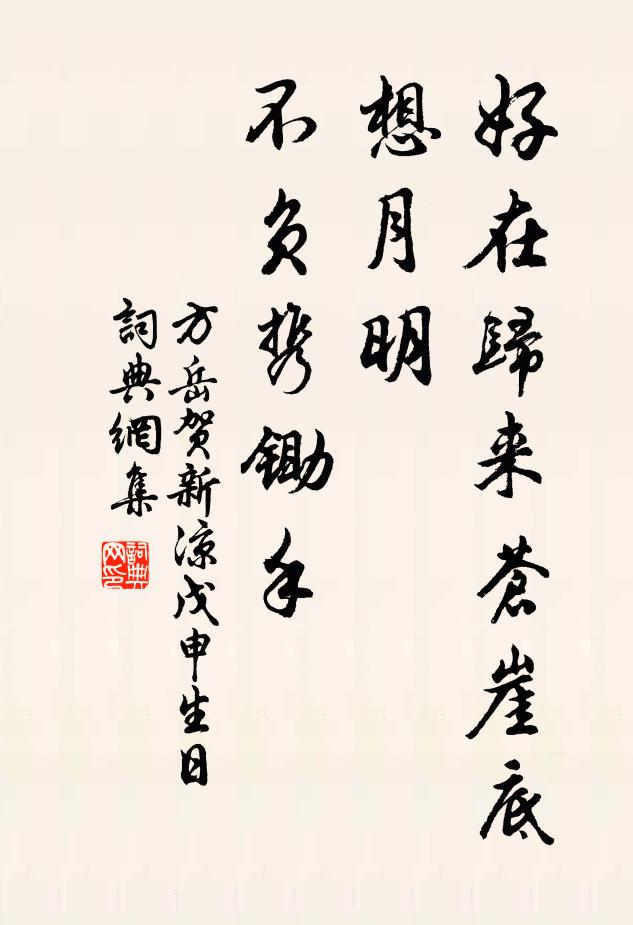 好在歸来蒼崖底
想月明
不负携鋤手
方岳贺新凉戊申生日
詞典網集
詞典网印